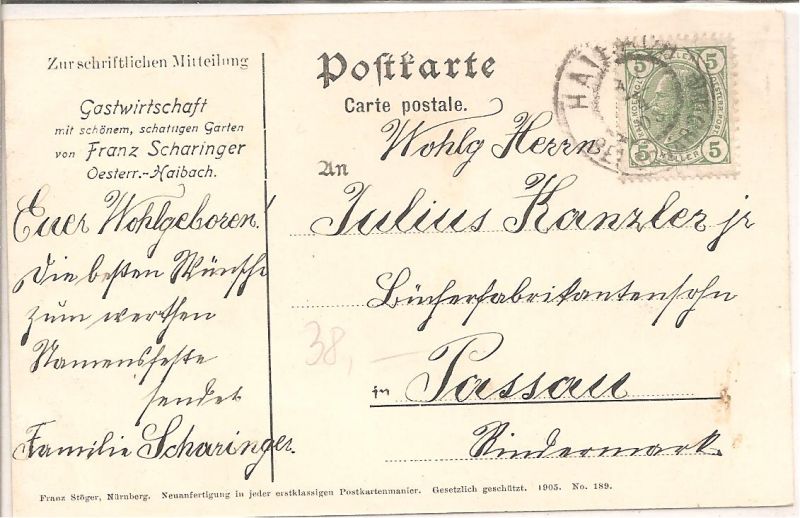 Zur schriftlichen Mitteilung
Gastwirtschaft
mit schönem, schattigen Garten
von Franz Scharinger
Oesterr.-Haibach.
Euer Wohlgeboren!
Die besten Wünsche
zum werthen
Namensfeste
sendet
Familie Scharinger.
Postkarte
Carte postale.
An
Wohlg Herrn
Julius Kanzler jr
Bücherfabrikantensohn
in Passau
Rindermarkt.
38,—
HAIBACH
5 HELLER 5
5 HELLER 5
Franz Stöger, Nürnberg. Neuanfertigung in jeder erstklassigen Postkartenmanier. Gesetzlich geschützt. 1905. No. 189.